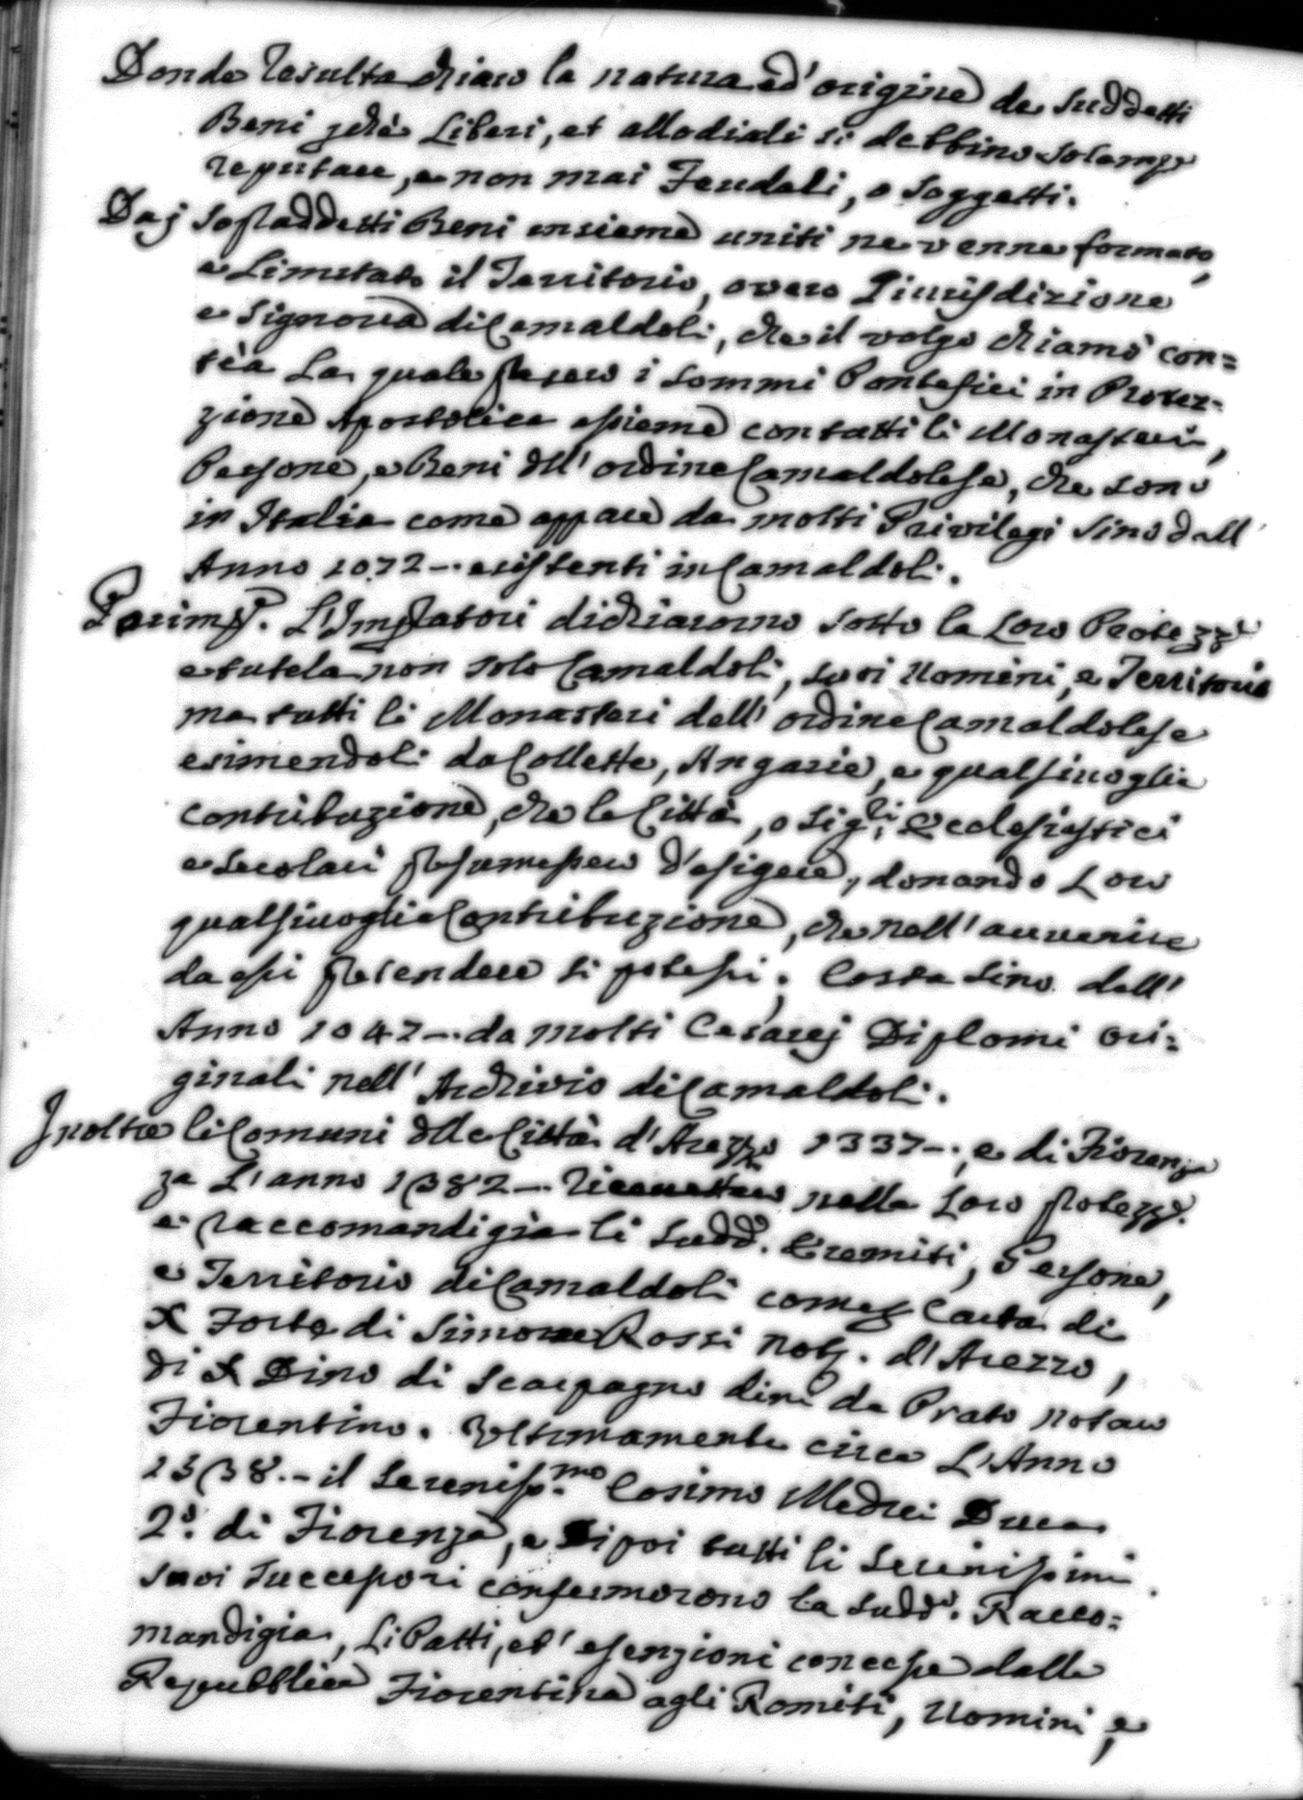 Donde resulta chiaro la natura ed' origine de suddetti
Beni perche Liberi, et allodiali si debbino solamte
reputare, e non mai Feudali, o soggetti.
Daj sopraddetti Beni insieme uniti ne venne formato,
e Limitato il Territorio, overo Giurisdizione
e Signoria di Camaldoli, che il volgo chiamò con=
tèa La quale presero i sommi Pontefici in Protez=
zione Apostolica assieme con tutti li Monasteri,
Persone, e Beni dell' ordine Camaldolese, che sono
in Italia come appare da molti Privilegi sino dall'
Anno 1072 -. esistenti in Camaldoli.
Parimte. L'Impratori dichiarorno sotto la Loro Protezze
e tutela non solo Camaldoli, suoi Uomini, e Territorio
ma tutti li Monasteri dell' ordine Camaldolese
esimendoli da Collette, Angarie, e qualsivoglia
contribuzione, che le Città, o Sigri. Ecclesiastici
e secolari presumessero d'esigere, donando Loro
qualsivoglia Contribuzione, che nell' avvenire
da essi pretendere si potessi; Costa sino dall'
Anno 1047 -. da molti Cesarej Diplomi ori=
ginali nell' Archivio di Camaldoli.
Inoltre li Comuni delle Città d' Arezzo 1337 -. , e di Fiorenza
za L' anno 1382 -. ricevettero nella Loro protezze.
e raccomandigia li sudd. Eremiti, Persone,
e Territorio di Camaldoli come p Carta di
X Forte di Simone Rossi Noto. d' Arezzo,
di X Dino di Scarpagno dini da Prato notaro
Fiorentino. Ultimamente circa L' Anno
1538. - il Sereniss.mo Cosimo Medici Duca
2o. di Fiorenza, e Dipoi tutti li Serenissimi
suoi Successori confermorono la sudda. Racco=
mandigia, Li Patti, et' esenzioni concesse dalla
Repubblica Fiorentina agli Romiti, Uomini, e